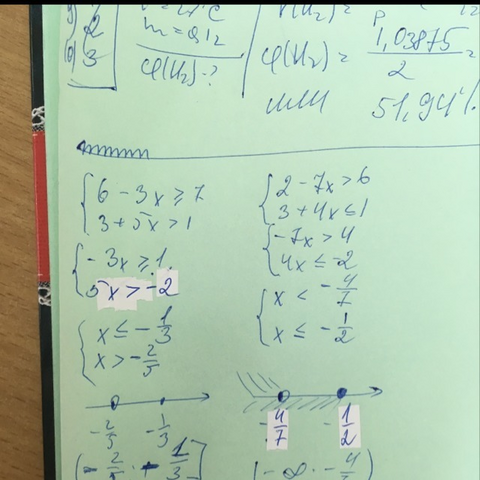 2
3
m = 
φ(H₂)-?
φ(H₂) = 1,03875 / 2 =
или 51,94%
{ 6 - 3x ≥ 7
3 + 5x > 1
{ - 3x ≥ 1
5x > -2
{ x ≤ - 1/3
x > - 2/5
- 2/5 - 1/3
(- 2/5 ; - 1/3]
{ 2 - 7x > 6
3 + 4x ≤ 1
{ -7x > 4
4x ≤ -2
{ x < - 4/7
x ≤ - 1/2
- 4/7 - 1/2
(-∞ ; - 4/7)